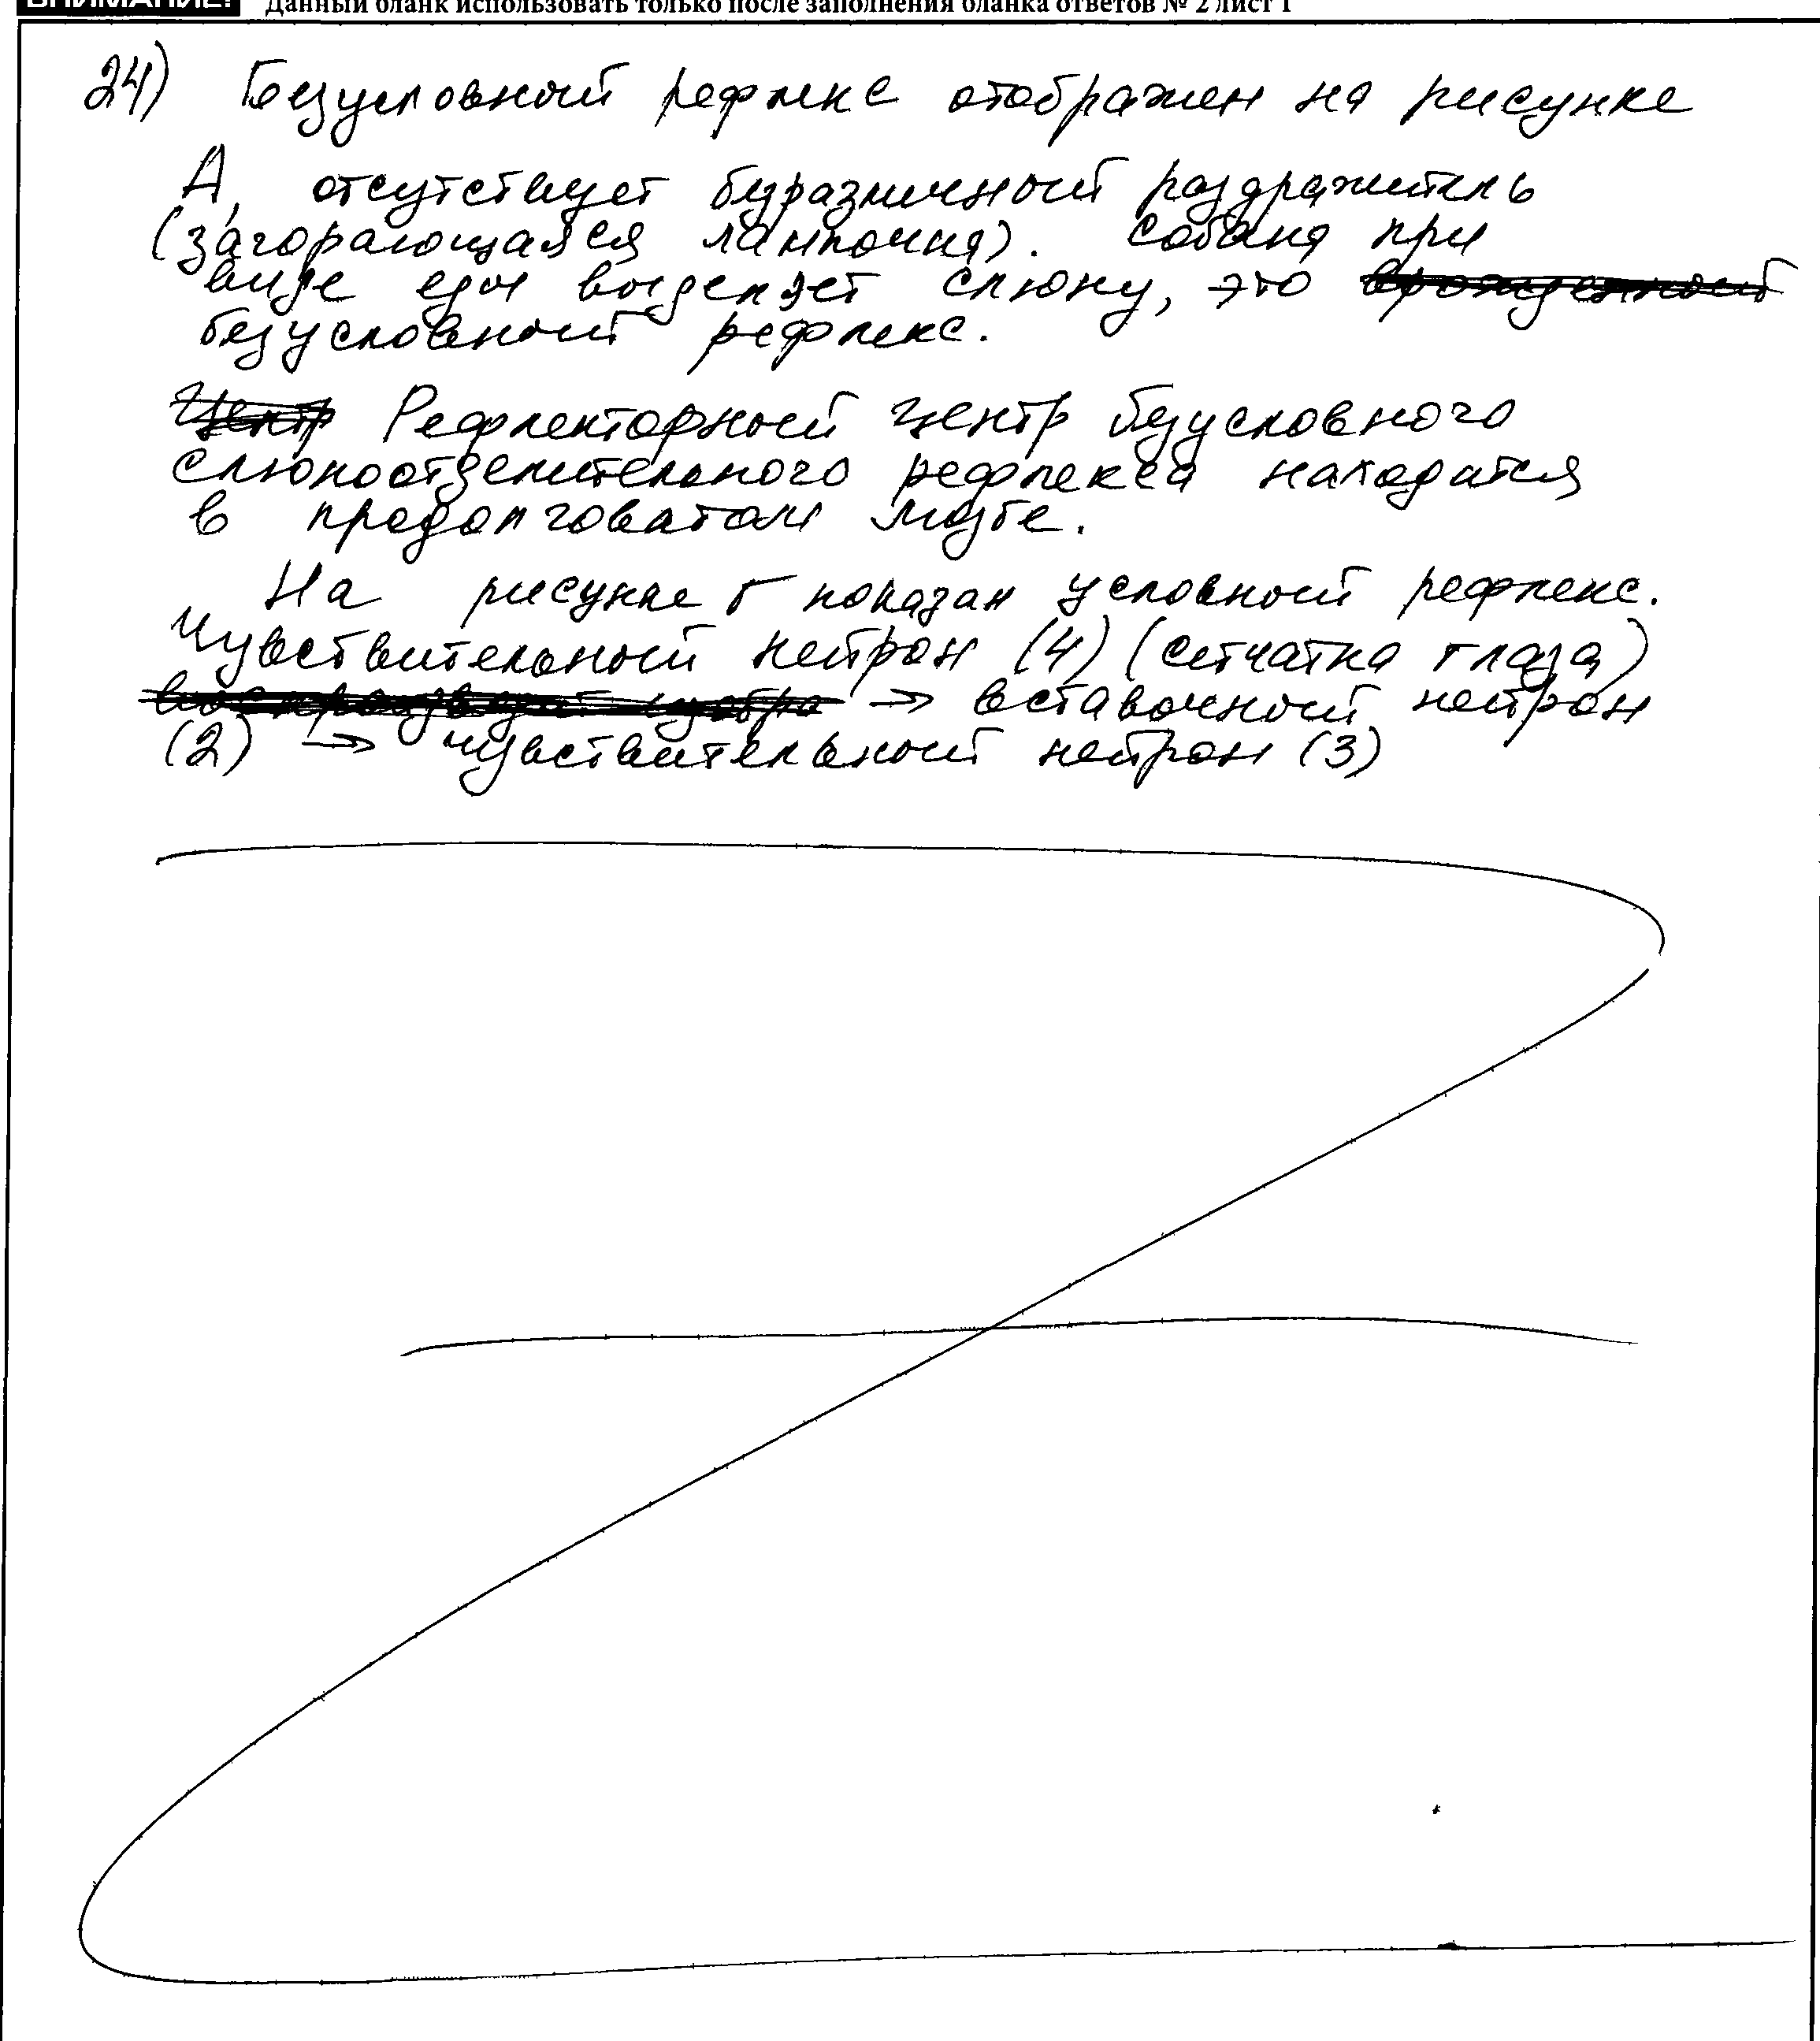 ВНИМАНИЕ! Данный бланк использовать только после заполнения бланка ответов № 2 лист 1
24) Безусловный рефлекс отображен на рисунке
А, отсутствует безразличный раздражитель
(загорающаяся лампочка). Собака при
виде еды выделяет слюну, это врожденный
безусловный рефлекс.
Центр Рефлекторный центр безусловного
слюноотделительного рефлекса находится
в продолговатом мозге.
На рисунке Б показан условный рефлекс.
Чувствительный нейрон (4) (сетчатка глаза)
воспроизводит изобра → вставочный нейрон
(2) → чувствительный нейрон (3)